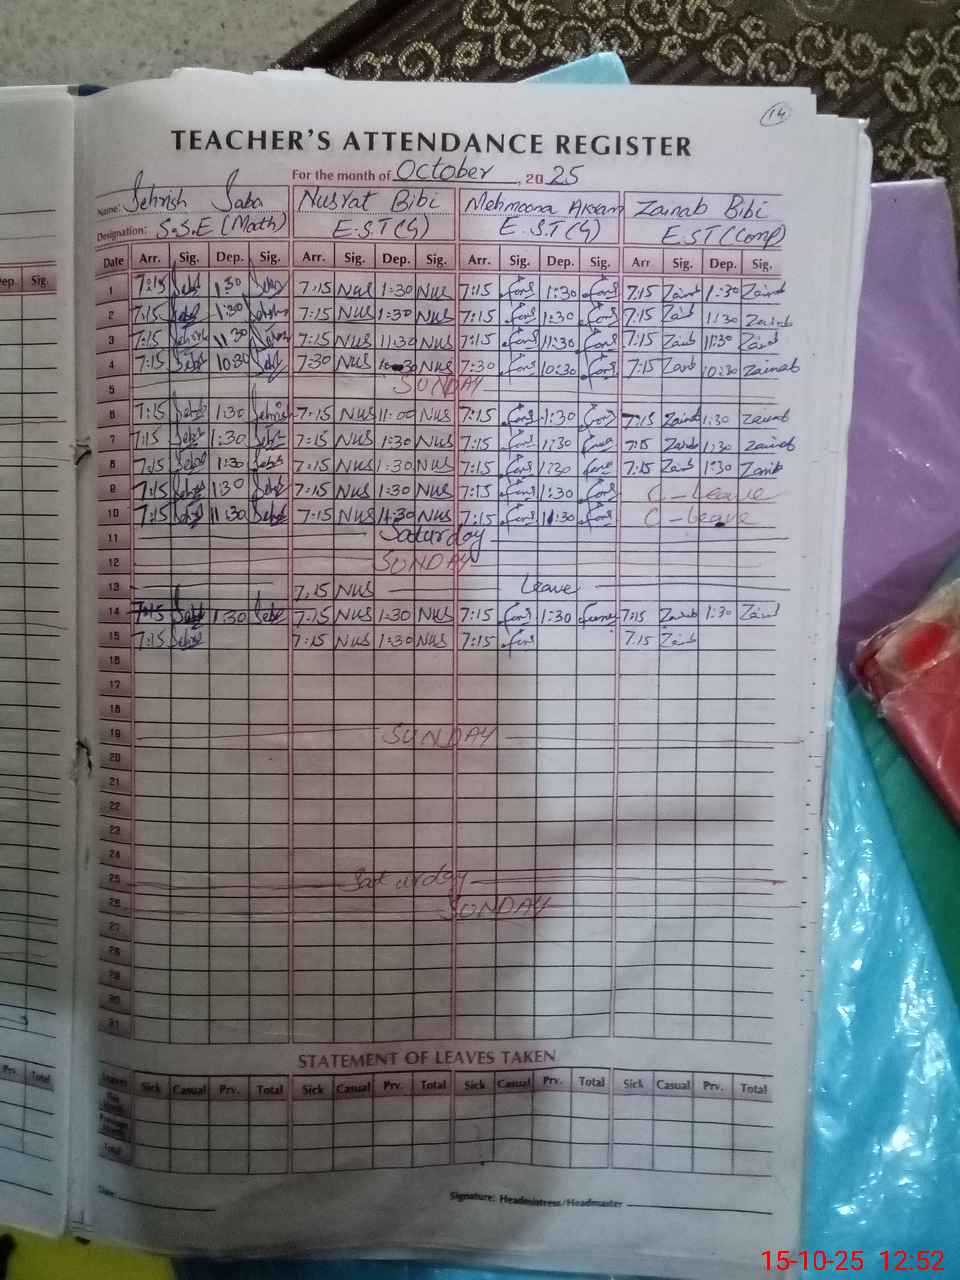 14
TEACHER'S ATTENDANCE REGISTER
For the month of October, 2025
Name: Sehrish Saba Nusrat Bibi Mehmoona Akram Zainab Bibi
Designation: S.S.E (Math) E.S.T (G) E.S.T (G) E.S.T (Comp)
ep. Sig. Date Arr. Sig. Dep. Sig. Arr. Sig. Dep. Sig. Arr. Sig. Dep. Sig. Arr. Sig. Dep. Sig.
1 7:15 1:30 7:15 Nus 1:30 Nus 7:15 1:30 7:15 Zainab 1:30 Zainab
2 7:15 1:30 7:15 Nus 1:30 Nus 7:15 1:30 7:15 Zainab 11:30 Zainab
3 7:15 11:30 7:15 Nus 11:30 Nus 7:15 11:30 7:15 Zainab 11:30 Zainab
4 7:15 10:30 7:30 Nus 10:30 Nus 7:30 10:30 7:15 Zainab 10:30 Zainab
5 SUNDAY
6 7:15 1:30 7:15 Nus 11:00 Nus 7:15 1:30 7:15 Zainab 1:30 Zainab
7 7:15 1:30 7:15 Nus 1:30 Nus 7:15 1:30 7:15 Zainab 1:30 Zainab
8 7:15 1:30 7:15 Nus 1:30 Nus 7:15 1:30 7:15 Zainab 1:30 Zainab
9 7:15 1:30 7:15 Nus 1:30 Nus 7:15 1:30 C-Leave
10 7:15 11:30 7:15 Nus 11:30 Nus 7:15 11:30 C-Leave
11 Saturday
12 SUNDAY
13 7:15 Nus Leave
14 7:15 1:30 7:15 Nus 1:30 Nus 7:15 1:30 7:15 Zainab 1:30 Zainab
15 7:15 7:15 Nus 1:30 Nus 7:15 7:15 Zainab
16
17
18
19 SUNDAY
20
21
22
23
24
25 Saturday
26 SUNDAY
27
28
29
30
31
STATEMENT OF LEAVES TAKEN
Prv. Total Leaves Sick Casual Prv. Total Sick Casual Prv. Total Sick Casual Prv. Total Sick Casual Prv. Total
Total
Date: Signature: Headmistress/Headmaster
15-10-25 12:52